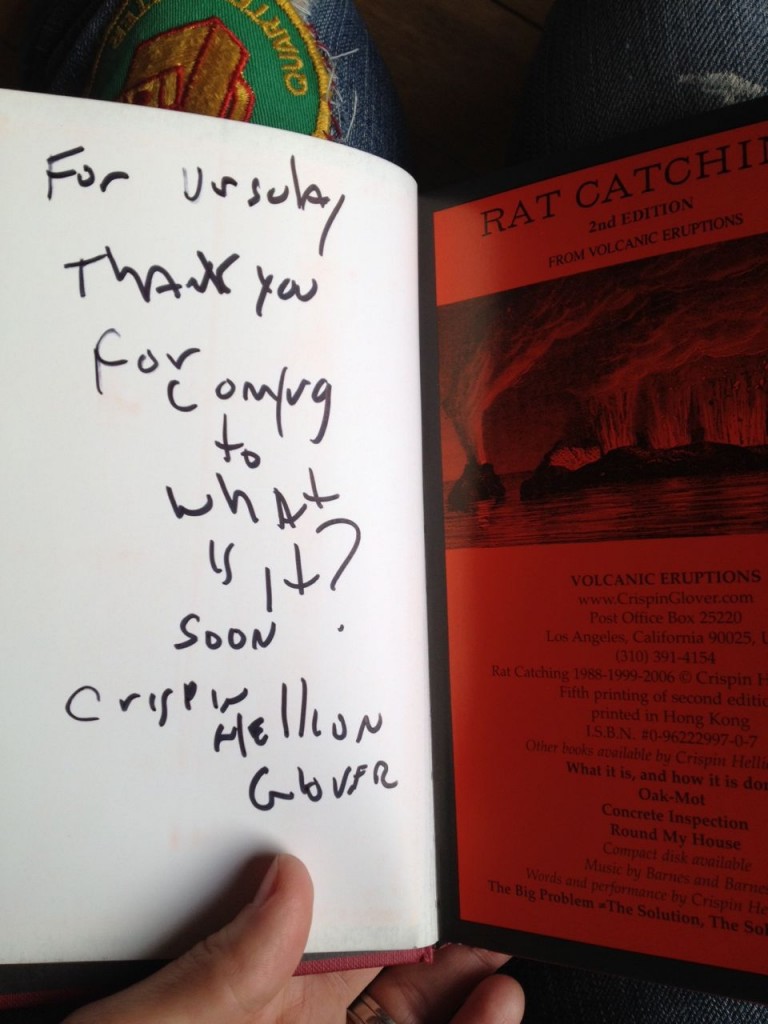 QUARTE
TER
For Ursula,
Thank you
For
coming
to
what
is it?
soon.
Crispin
Hellion
Glover
RAT CATCHIN
2nd EDITION
FROM VOLCANIC ERUPTIONS
VOLCANIC ERUPTIONS
www.CrispinGlover.com
Post Office Box 25220
Los Angeles, California 90025, U
(310) 391-4154
Rat Catching 1988-1999-2006 © Crispin H
Fifth printing of second editio
printed in Hong Kong
I.S.B.N. #0-96222997-0-7
Other books available by Crispin Helli
What it is, and how it is don
Oak-Mot
Concrete Inspection
Round My House
Compact disk available
Music by Barnes and Barnes
Words and performance by Crispin He
The Big Problem ≠ The Solution, The Sol